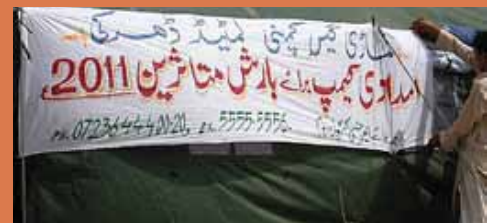 ماڑی گیس کمپنی لمیٹڈ ڈھرکی
امدادی کیمپ برائے بارش متاثرین 2011
PH. 07236444 00-20, EX. 5555-5556,